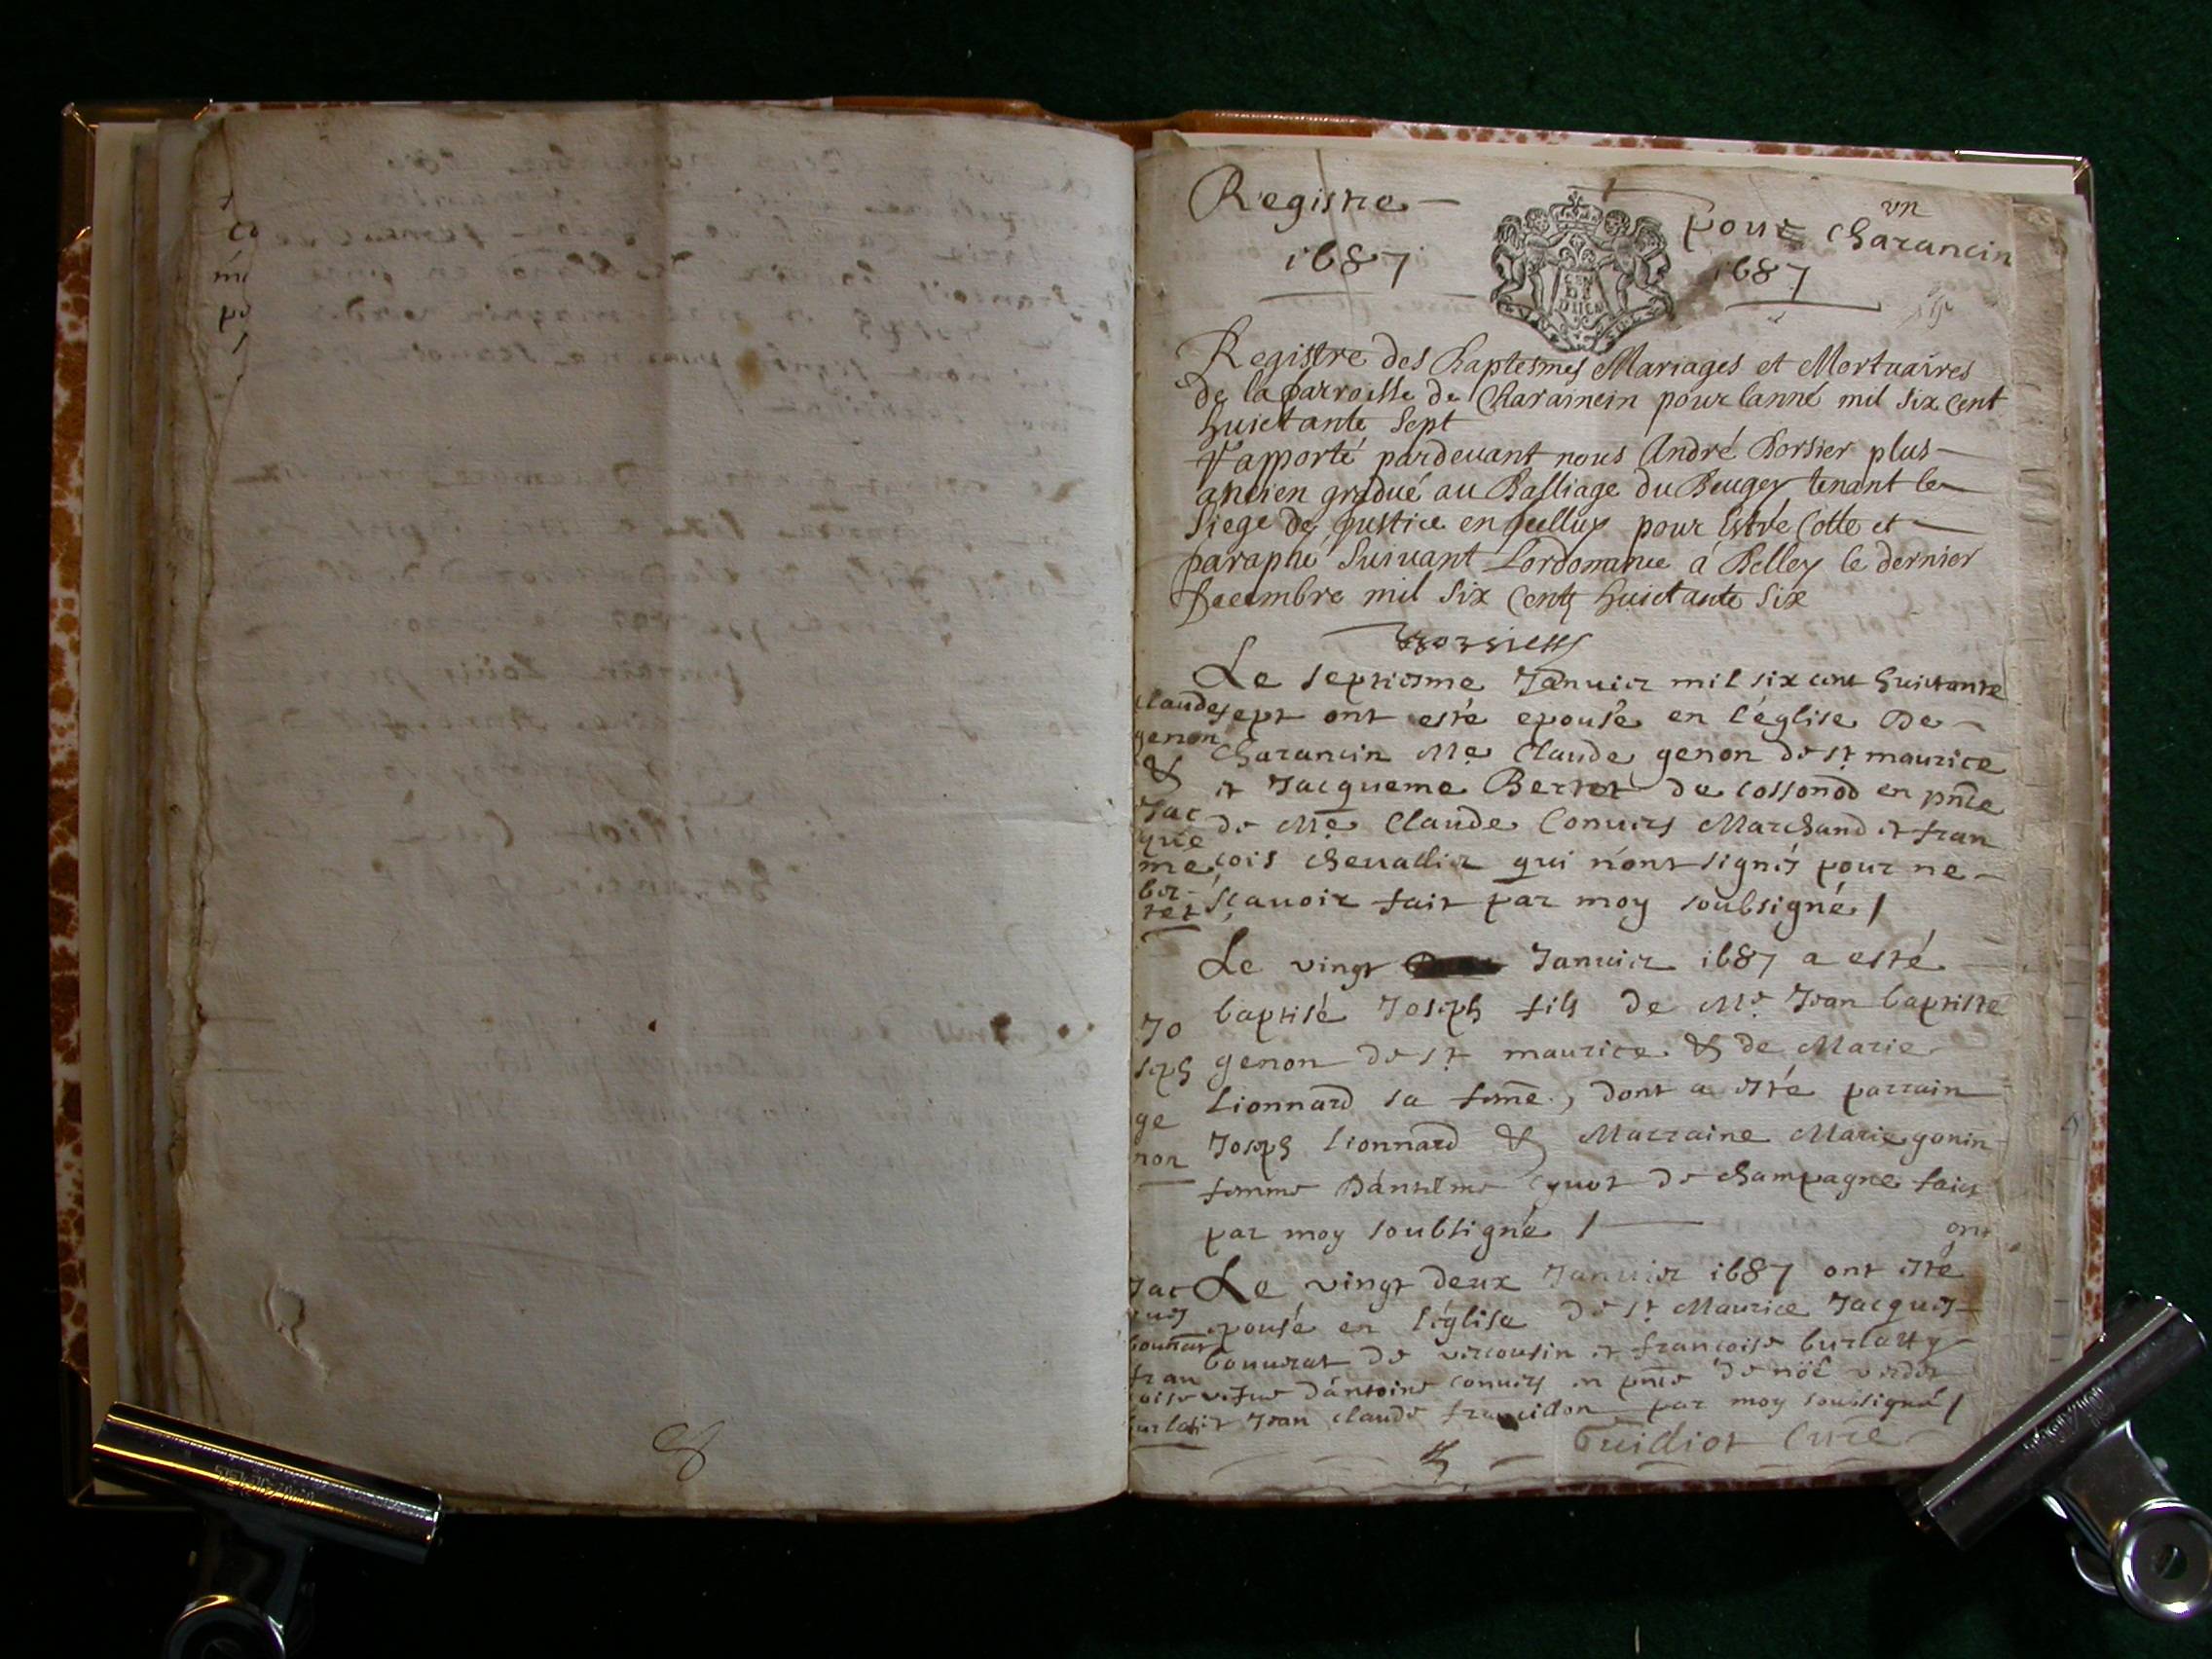 Registre
pour Charancin
vn
1687
1687
Registre des Baptesmes Mariages et Mortuaires
de la parroisse de Charaincin pour lanné mil six Cent
huictante Sept
apporté pardeuant nous André Borsier plus
ancien gradué au Balliage du Beugey tenant le
Siege de justice en pour Estre Cotte et
paraphé Suiuant Lordonnance á Belley le dernier
Decembre mil Six Centz huictante Six
Le septiesme Januier mil six cent huictante
sept ont esté epousé en l'église De
Charancin Me Claude genon de st maurice
et Jacqueme Bertet de cossonod en pñce
de Me Claude Conuers Marchand et fran
cois cheuallier qui n'ont signés pour ne
sçauoir fait par moy soubsigné /
claude
genon
&
Jac
que
me
ber-
tet
Le vingt Januier 1687 a esté
baptisé Joseph fils de Me Jean baptiste
genon de st maurice & de Marie
Lionnard sa feme, dont a esté parrain
Joseph Lionnard & Marraine Marie gonin
femme D'antelme de champagne faict
par moy soubsigné /
Jo
seph
ge
non
ont
Le vingt deux Januier 1687 ont esté
epousé en l'église de st Maurice Jacques
bonnerat de vercousin et francoise burlatty
vefue d'antoine conuers en pñce de nöel verdet
et Jean claude francillon par moy soubsigné /
Jac
ques
fran
oise
Guilliot Curé
8